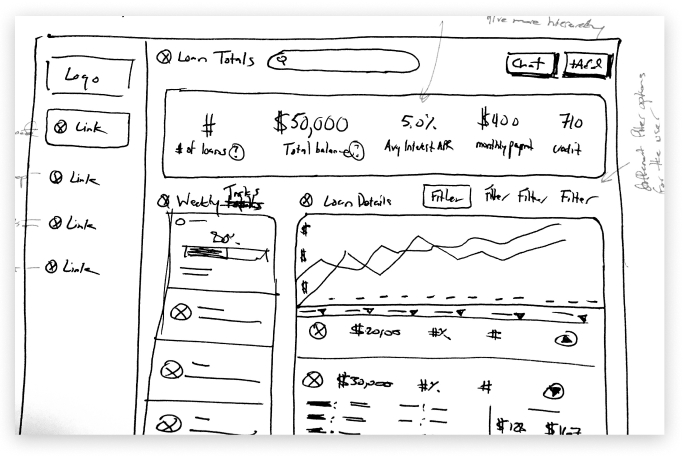 give more hierarchy
Logo
Link
Link
Link
Link
Loan Totals
Chat
+Add
#
# of loans ?
$50,000
Total balance ?
5.0%
Avg Interest APR
$400
monthly paymt
710
credit
different filter options
for the user
Weekly Tasks
80%
Loan Details
Filter
Filter
Filter
Filter
$
$
$
$20,000 #% #
$30,000 #% #
$128